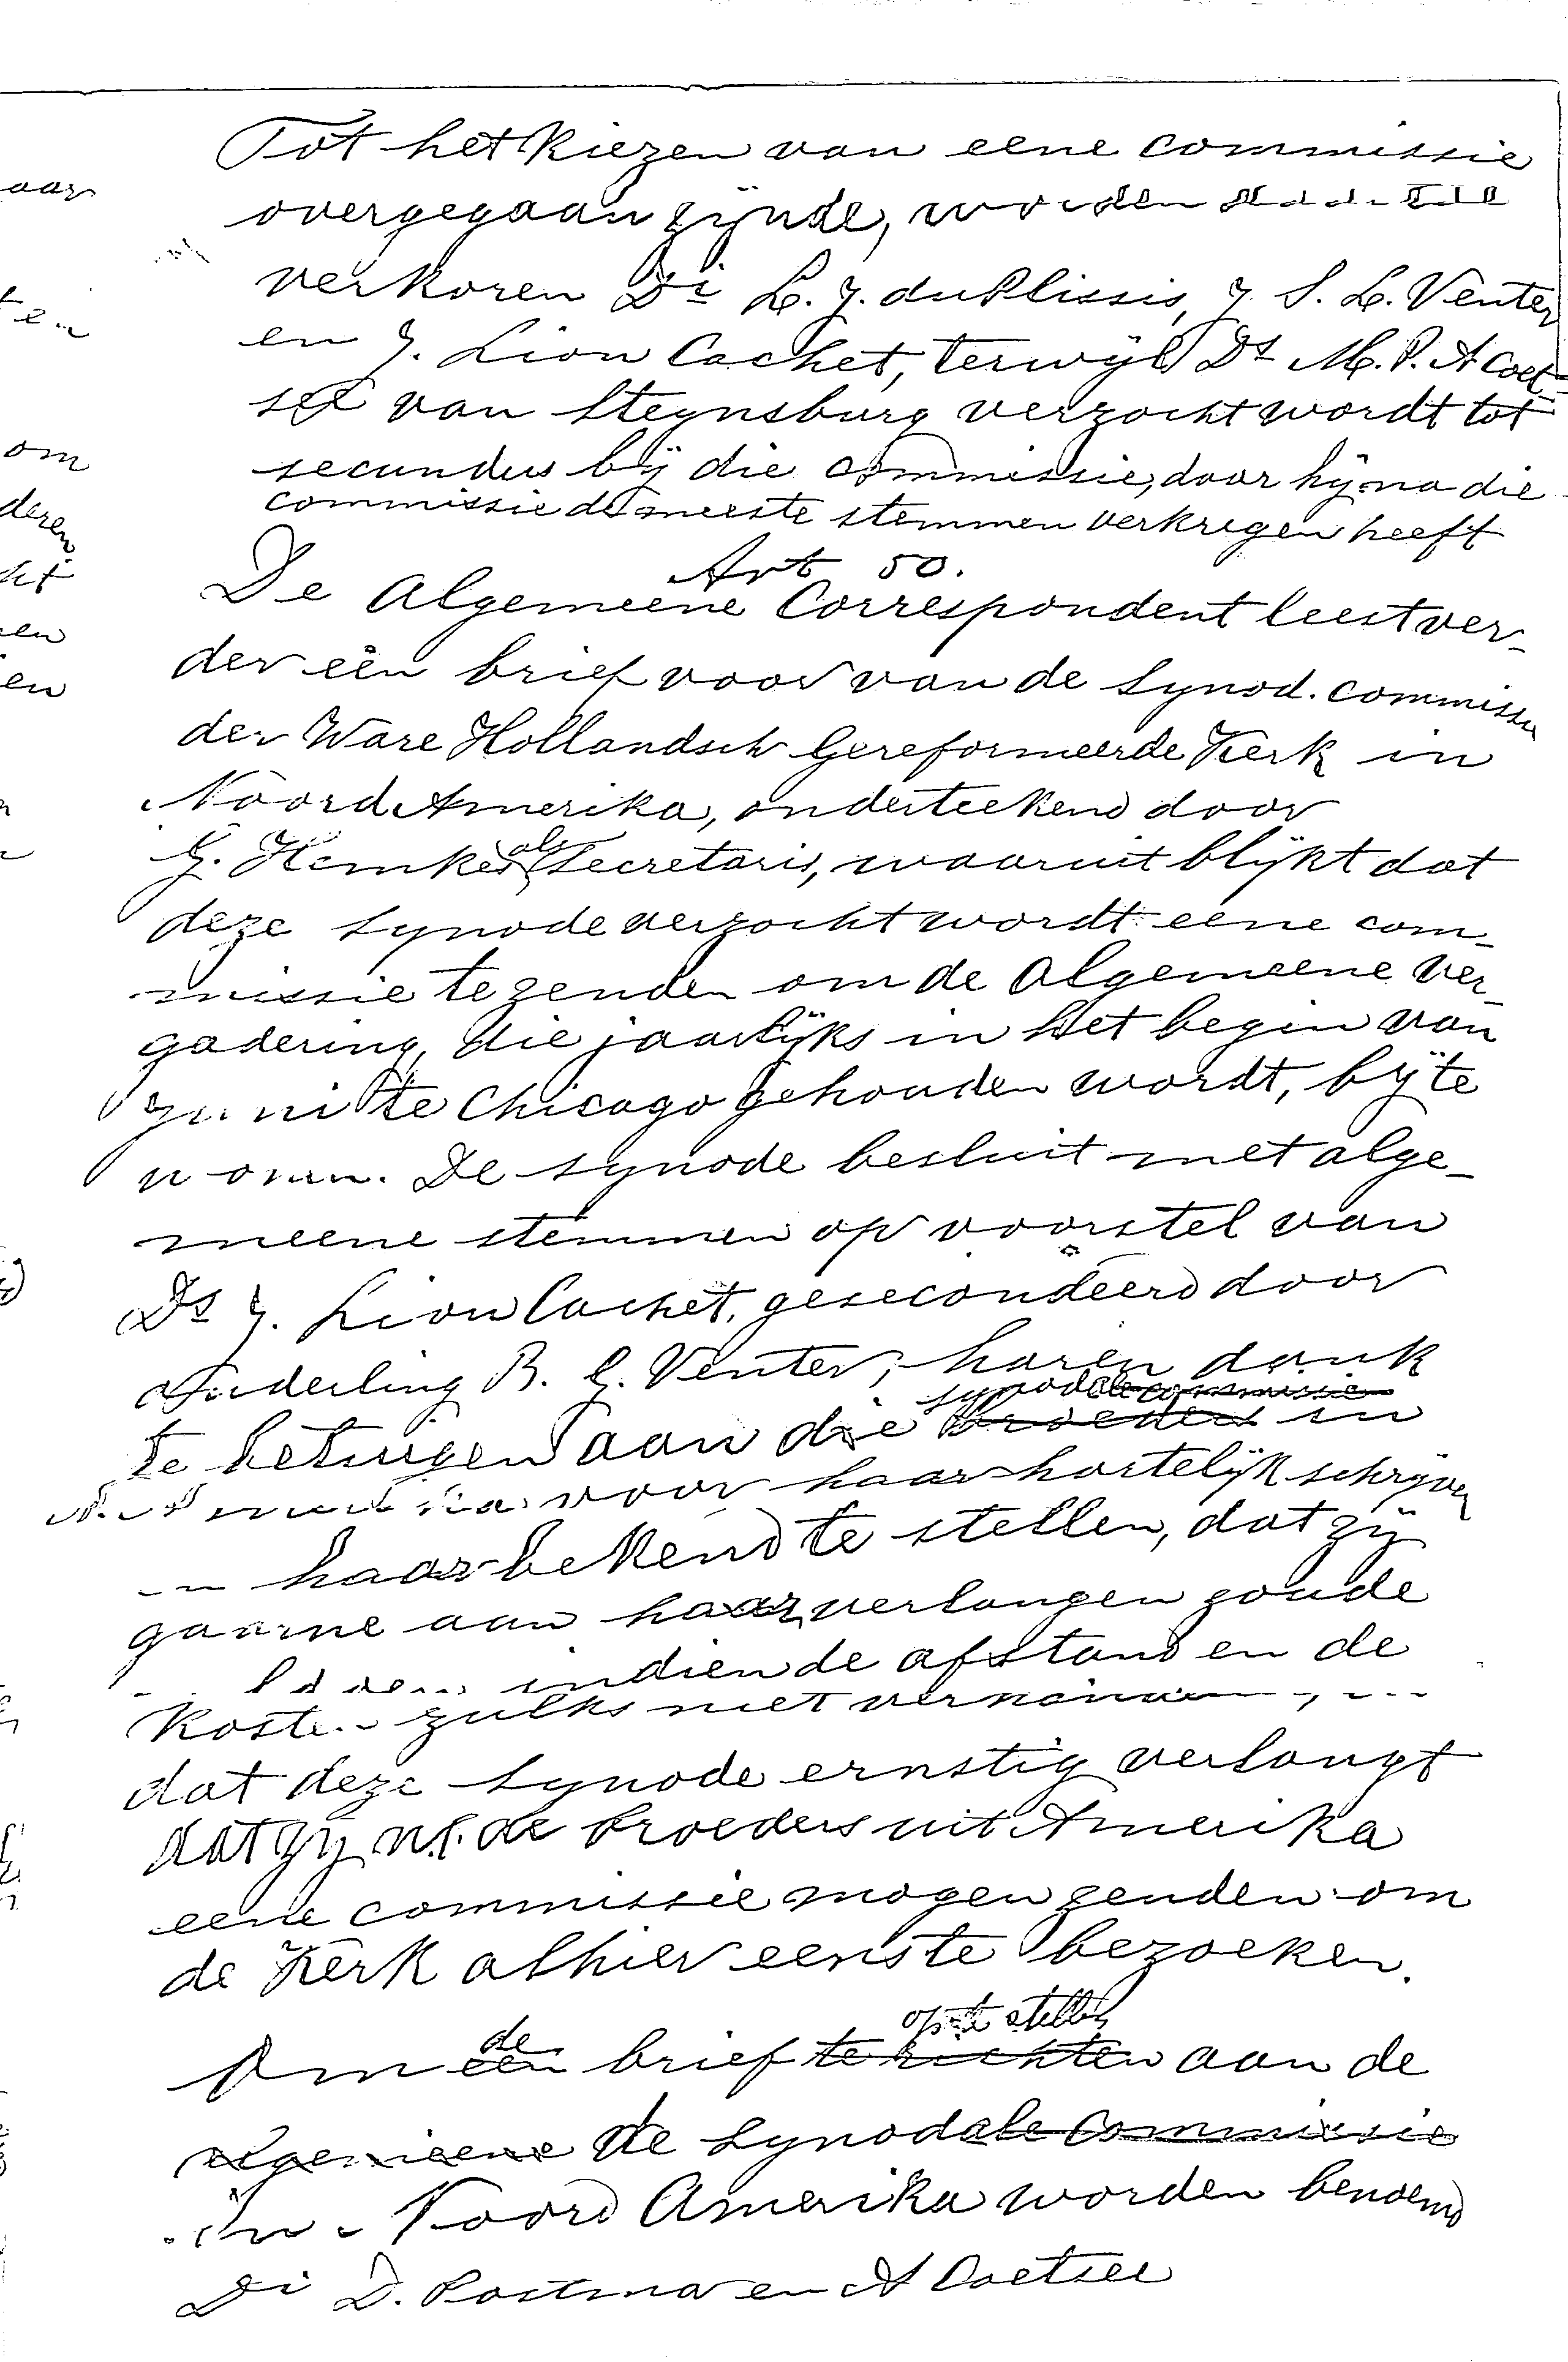 Tot het kiezen van eene commissie
overgegaan zijnde, worden
verkoren Di L. J. du Plissis, J. S. L. Venter
en J. Lion Cachet, terwijl Ds M. P. A Coet-
see van Steynsburg verzocht wordt tot
secundus bij die commissie, daar hij na die
commissie de meeste stemmen verkregen heeft
Art 50.
De Algemeene Correspondent leest ver-
der één brief voor van de Synod. commissie
der Ware Hollandsch Gereformeerde Kerk in
Noord Amerika, onderteekend door
G. Hemkes als Secretaris, waaruit blijkt dat
deze Synode verzocht wordt eene com-
missie te zenden om de Algemeene Ver-
gadering, die jaarlijks in het begin van
Juni te Chicago gehouden wordt, bij te
wonen. De Synode besluit met alge-
meene stemmen op voorstel van
Ds J. Lion Cachet, gesecondeerd door
Ouderling B. G. Venter, haren dank
synodale commissie
te betuigen aan die broeders in
N. Amerika voor haar hartelijk schrijven
en haar bekend te stellen, dat zij
gaarne aan haar verlangen zoude
indien de afstand en de
Kosten zulks niet
dat deze Synode ernstig verlangt
dat zij n.l. de broeders uit Amerika
eene commissie mogen zenden om
de Kerk alhier eens te bezoeken.
de op te stellen
Om één brief te richten aan de
algemeene de Synodale Commissie
in Noord Amerika worden benoemd
Di D. Postma en A Coetsee
aar
ten
om
deren
en
en